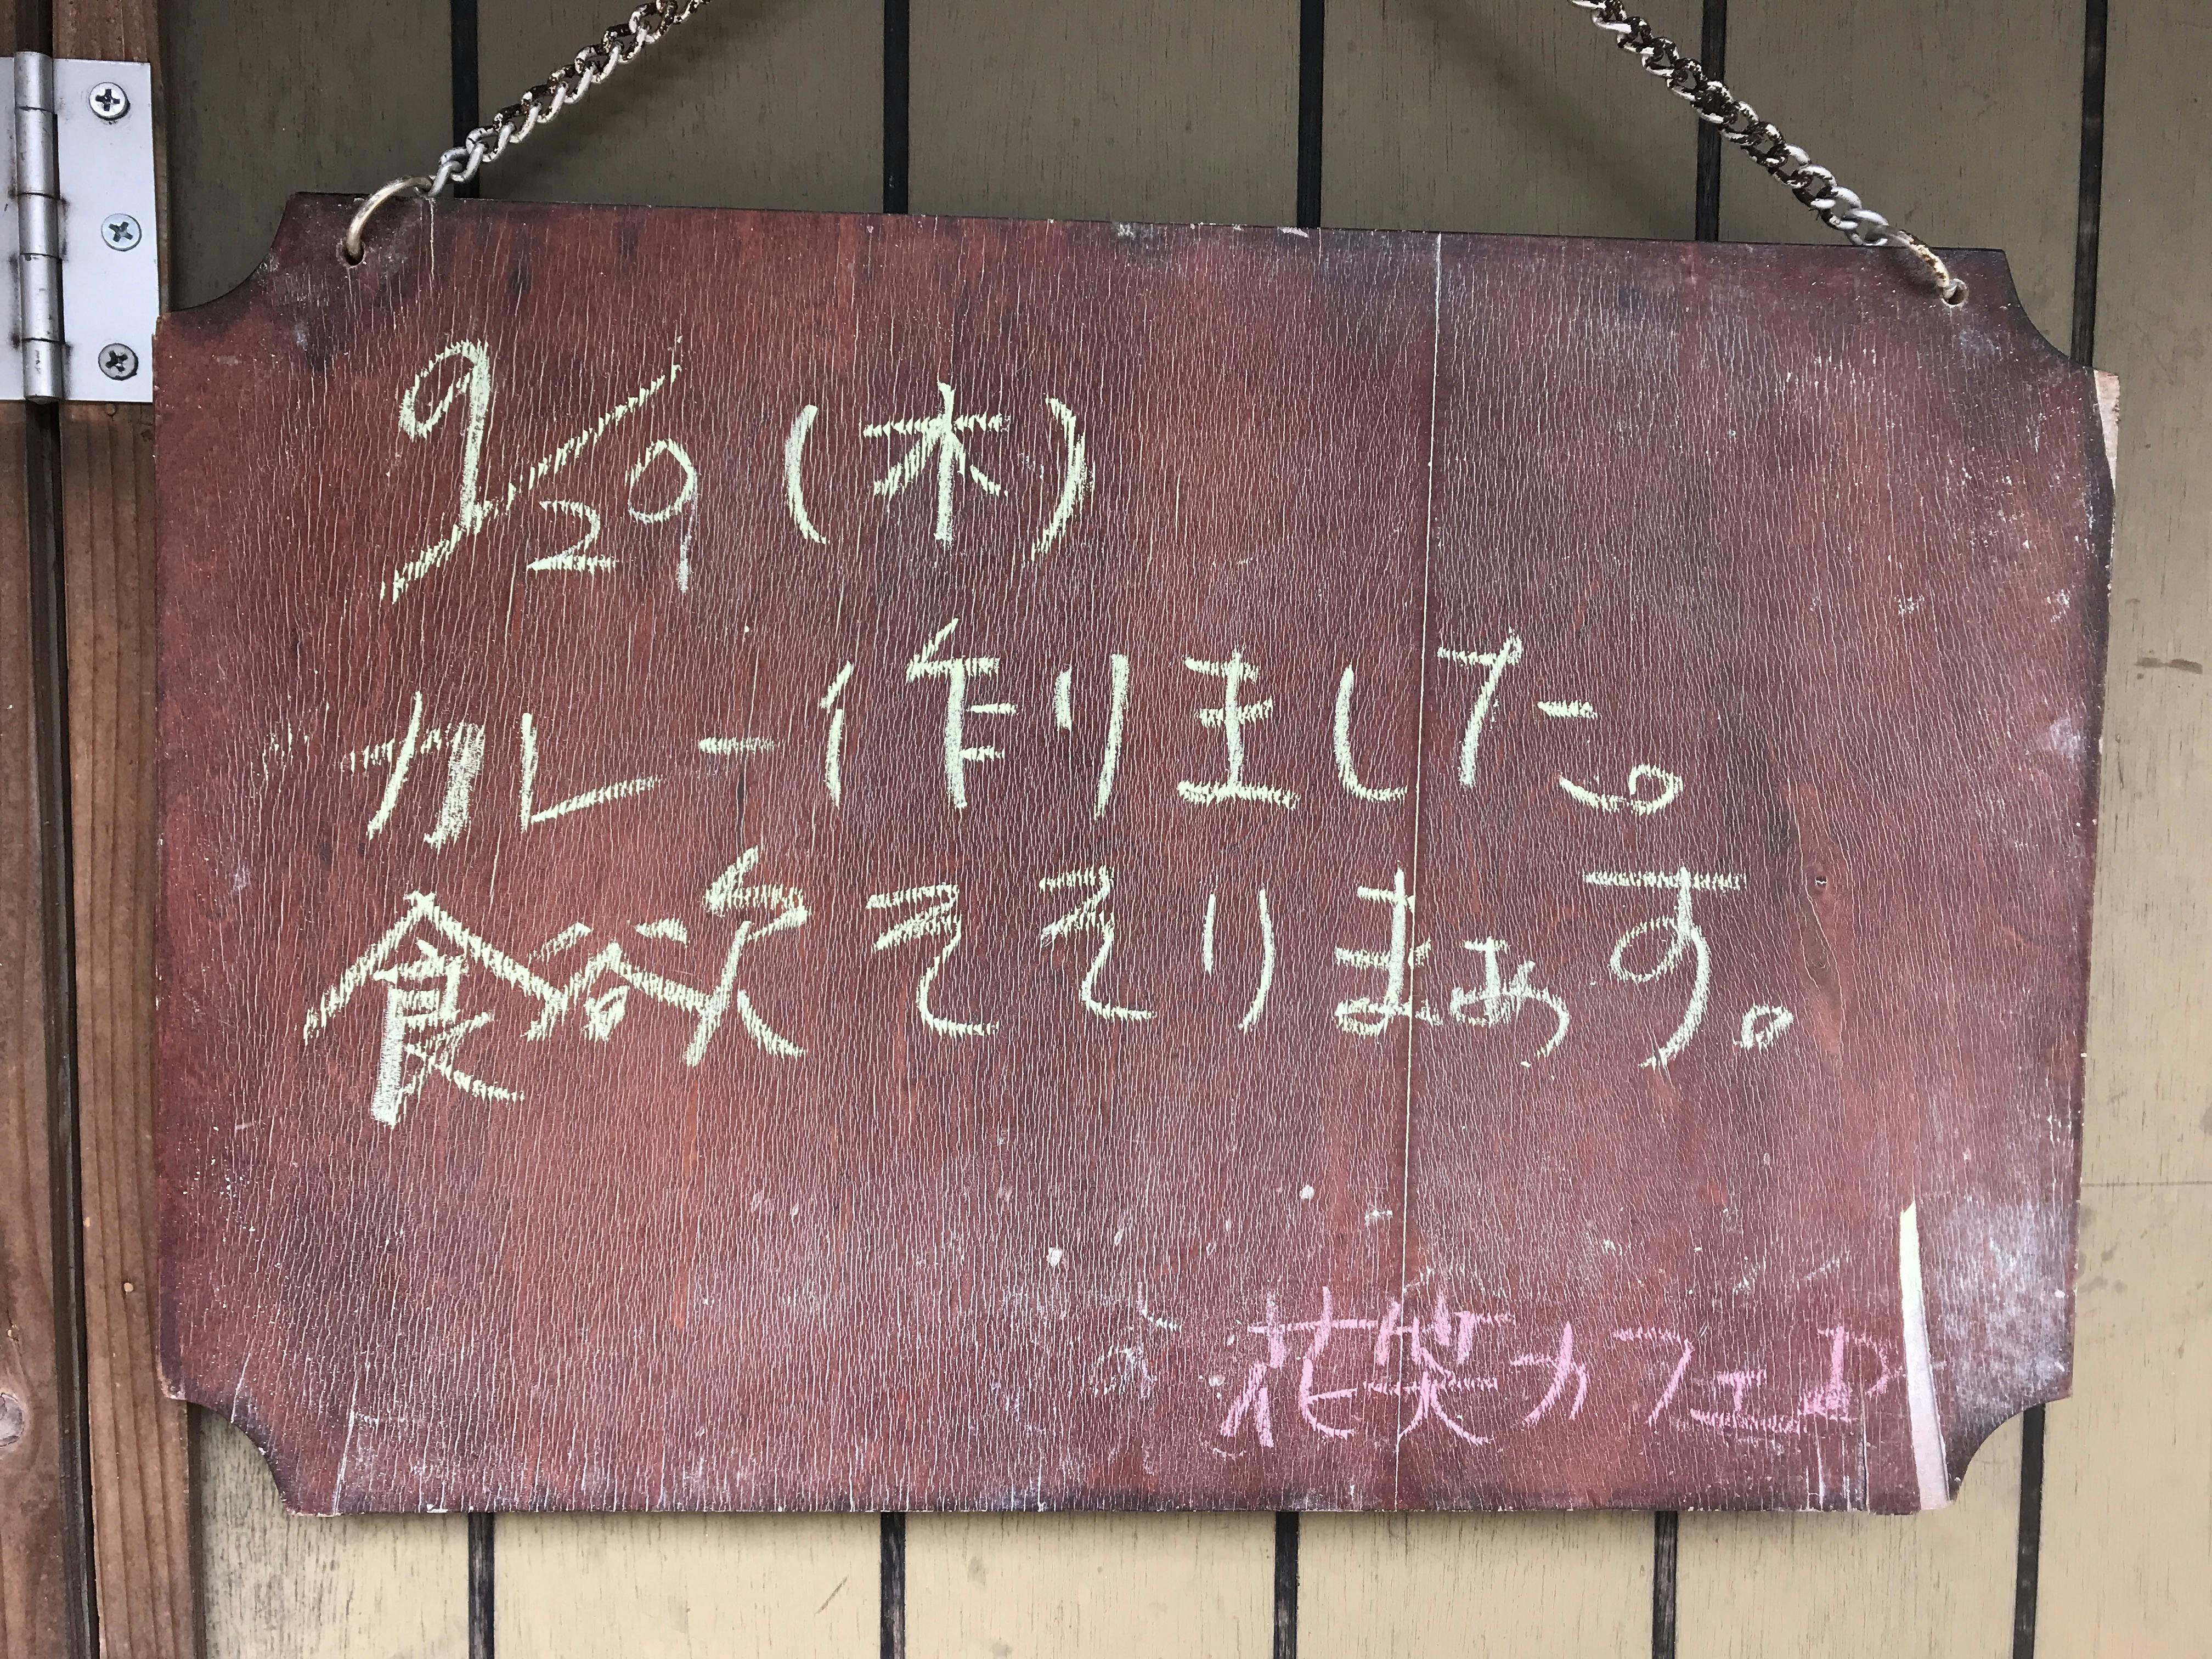 9/29 (木)
カレー作りました。
食欲そそりまぁす。
花笑カフェ